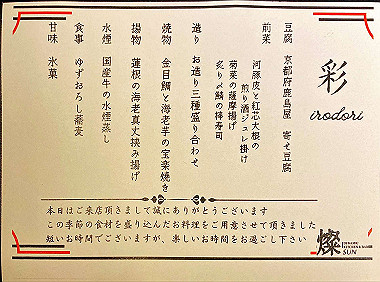 彩
irodori
豆腐 京都府鹿島屋 寄せ豆腐
前菜 河豚皮と紅芯大根の
煎り酒ジュレ掛け
菊菜の薩摩揚げ
炙り〆鯖の棒寿司
造り お造り三種盛り合わせ
焼物 金目鯛と海老芋の宝楽焼き
揚物 蓮根の海老真丈挟み揚げ
水煙 国産牛の水煙蒸し
食事 ゆずおろし蕎麦
甘味 氷菓
本日はご来店頂きまして誠にありがとうございます
この季節の食材を盛り込んだお料理をご用意させて頂きました
短いお時間でございますが、楽しいお時間をお過ごし下さい
燦
SUN